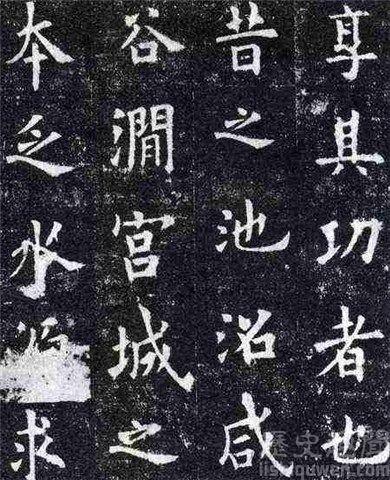 享其功者也
昔之池沼咸
谷澗宮城之
本乏水求
歷史趣聞
lishiquwen.com